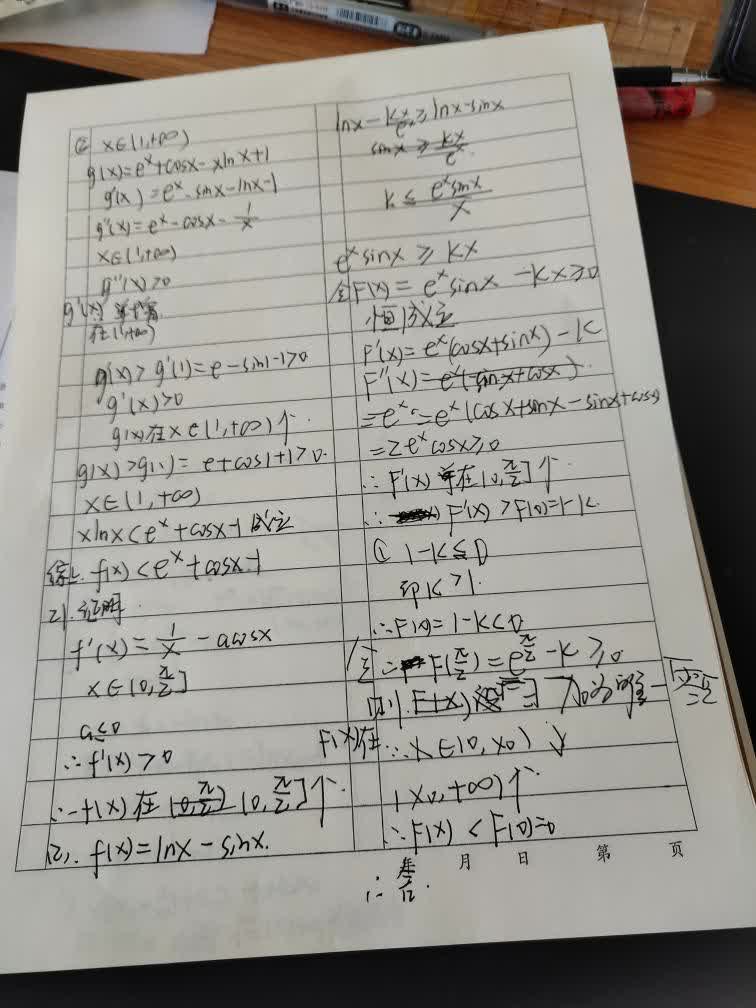 ② x∈(1,+∞)
g(x)=e^x+cosx-xlnx+1
g'(x)=e^x-sinx-lnx-1
g''(x)=e^x-cosx-1/x
x∈(1,+∞)
g''(x)>0
g'(x)单增
在(1,+∞)
g'(x)>g'(1)=e-sin1-1>0
g'(x)>0
g(x)在x∈(1,+∞)↑
g(x)>g(1)=e+cos1+1>0.
x∈(1,+∞)
xlnx<e^x+cosx-1成立
综上.f(x)<e^x+cosx-1
2).证明.
f'(x)=1/x-acosx
x∈(0,π/2]
a≤0
∴f'(x)>0
∴f(x)在(0,π/2]↑.
(2).f(x)=lnx-sinx.
lnx-kx/e^x≥lnx-sinx
sinx≥kx/e^x.
k≤e^xsinx/x
e^xsinx≥kx
令F(x)=e^xsinx-kx≥0
恒成立
F'(x)=e^x(cosx+sinx)-k
F''(x)
=e^x(cosx+sinx-sinx+cosx)
=2e^xcosx≥0
∴F'(x)在(0,π/2]↑.
∴F'(x)>F(0)=1-k.
① 1-k≤0
即k>1.
∴F(x)=1-k<0
令∴F(π/2)=e^(π/2)-k≥0
则.F(x) ∃x0为唯一零
F(x)在∴x∈(0,x0)↓
(x0,+∞)↑
∴F(x)<F(0)=0
年 月 日 第 页